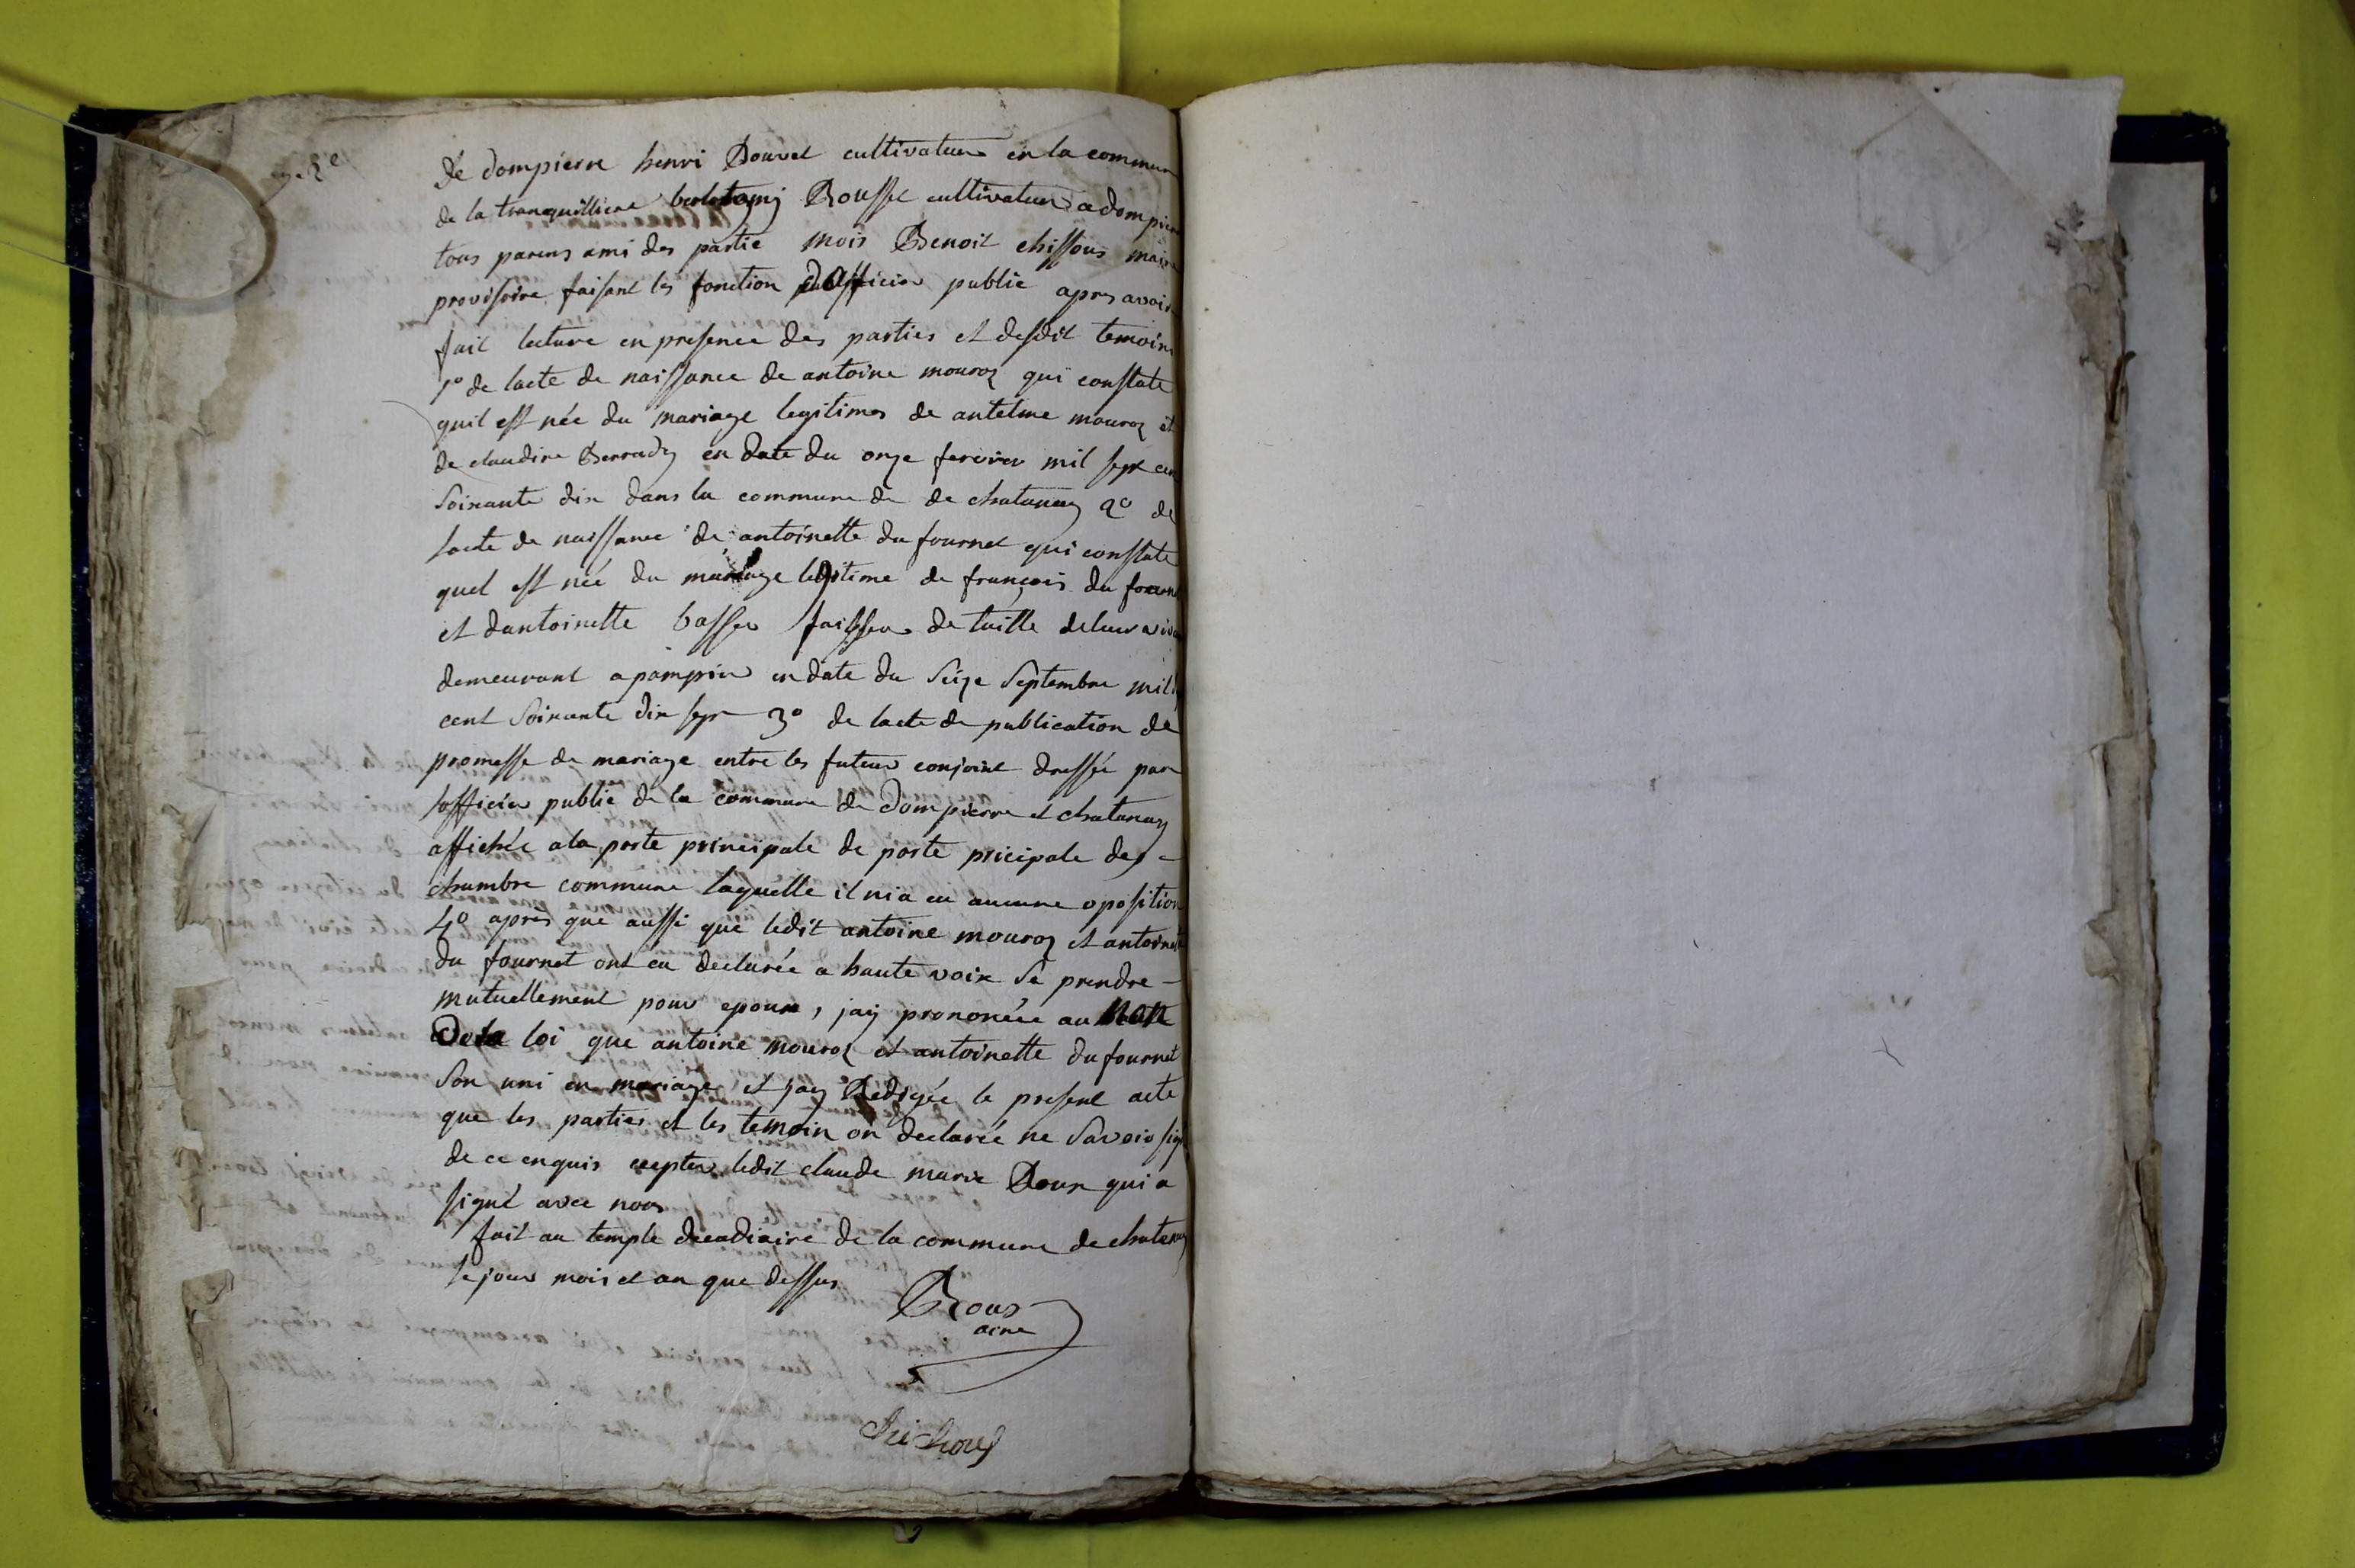 De dompierre henri Bouvet cultivateur en la commun
de la tranquilliere Roussel cultivateur a dompier
tous parens ami des partie mois Benoit chissous mair
provisoire faisant les fonction dofficier public apres avoir
fait lecture en presence des parties et desdit temoin
1º de lacte de naissance de antoine mouroz qui constate
quil est née du mariage legitimes de antelme mouroz et
de claudine en date du onze fervrier mil sept cen
soixante dix dans la commune de de chatanay 2º de
lacte de naissance de antoinette du fournet qui constate
quel est née du mariage legitime de françois du fourn
et dantoinette basset de
demeurant a en date du seize septembre mil
cent soixante dix sept 3º de lacte de publication de
promesse de mariage entre les futeur conjoint dressée par
lofficier public de la commune de dompierre et chatanay
affichée a la porte principale de porte pricipale des
chambre commune laquelle il nia eu aucune oposition
4º après que aussi que ledit antoine mouroz et antoinet
du fournet ont eu declarée a haute voix se prendre -
mutuellement pour epoux, jay prononcée au nom
De la loi que antoine mouroz et antoinette du fournet
son uni en mariage et jay Redigée le present acte
que les parties et les temoin on declarée ne savoir sig
de ce enquis excepter ledit claude marie Roux qui a
signé avec nous
fait au temple decadiaire de la commune de chatenay
le jour mois et an que dessus
Roux
aine